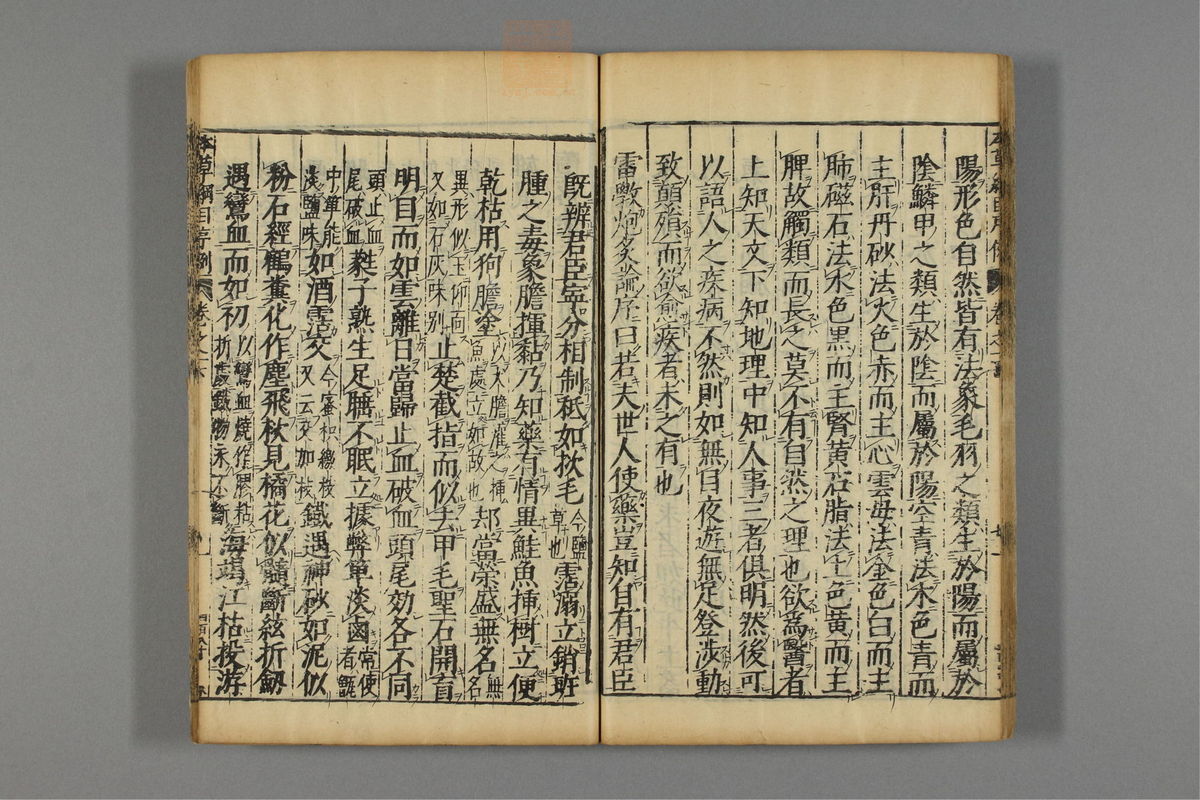 陽形色自然皆有法象毛羽之類生於陽而屬於
陰鱗甲之類生於陰而屬於陽空青法木色青而
主肝丹砂法火色赤而主心雲母法金色白而主
肺磁石法水色黑而主腎黄石脂法土色黄而主
脾故觸類而長之莫不有自然之理也欲為醫者
上知天文下知地理中知人事三者俱明然後可
以語人之疾病不然則如無目夜遊無足登涉動
致顛殞而欲愈疾者未之有也
雷斆炮炙論序曰若夫世人使藥豈知自有君臣
既辨君臣寧分相制秖如栨毛今鹽草也霑溺立銷斑
腫之毒象膽揮黏乃知藥有情異鮭魚挿樹立便
乾枯用狗膽塗以犬膽灌之挿魚處立如故也却當榮盛無名無名
異形似玉仰面又如石灰味别止楚截指而似去甲毛聖石開盲
明目而如雲離日當歸止血破血頭尾効各不同
頭止血尾破血蕤子熟生足睡不眠立據弊箄淡鹵常使者甑
中箄能淡鹽味如酒霑交今蜜枳繳枝又云交加枝鐵遇神砂如泥似
粉石經鶴糞化作塵飛栨見橘花似髓斷絃折劒
遇鸞血而如初以鸞血煉作膠粘折處鐵物永不斷海竭江枯投游